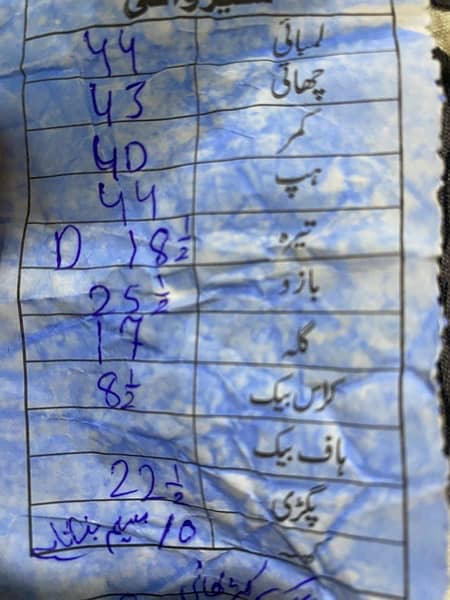 لمبائی 44
چھاتی 43
کمر 40
ہپ 44
تیرہ 18½ D
بازو 25½
گلہ 17
کراس بیک 8½
ہاف بیک
پگڑی 22½
10